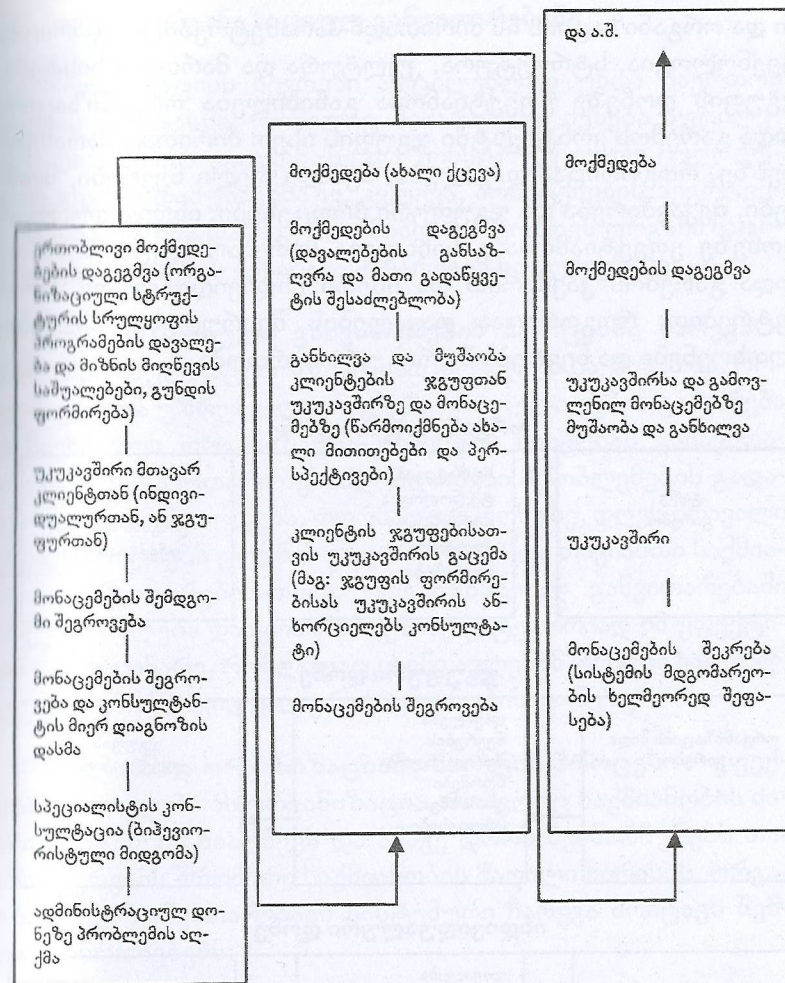 ერთობლივი მოქმედე-
ბების დაგეგმვა (ორგა-
ნიზაციული სტრუქ-
ტურის სრულყოფის
პროგრამების დავალე-
ბა და მიზნის მიღწევის
საშუალებები, გუნდის
ფორმირება)
უკუკავშირი მთავარ
კლიენტთან (ინდივი-
დუალურთან, ან ჯგუ-
ფურთან)
მონაცემების შემდგო-
მი შეგროვება
მონაცემების შეგრო-
ვება და კონსულტან-
ტის მიერ დიაგნოზის
დასმა
სპეციალისტის კონ-
სულტაცია (ბიჰევიო-
რისტული მიდგომა)
ადმინისტრაციულ დო-
ნეზე პრობლემის აღ-
ქმა
მოქმედება (ახალი ქცევა)
მოქმედების დაგეგმვა
(დავალებების განსაზ-
ღვრა და მათი გადაწყვე-
ტის შესაძლებლობა)
განხილვა და მუშაობა
კლიენტების ჯგუფთან
უკუკავშირზე და მონაცე-
მებზე (წარმოიქმნება ახა-
ლი მითითებები და პერ-
სპექტივები)
კლიენტის ჯგუფებისათ-
ვის უკუკავშირის გაცემა
(მაგ: ჯგუფის ფორმირე-
ბისას უკუკავშირის ან-
ხორციელებს კონსულტა-
ტი)
მონაცემების შეგროვება
და ა.შ.
მოქმედება
მოქმედების დაგეგმვა
უკუკავშირსა და გამოვ-
ლენილ მონაცემებზე
მუშაობა და განხილვა
უკუკავშირი
მონაცემების შეკრება
(სისტემის მდგომარეო-
ბის ხელმეორედ შეფა-
სება)